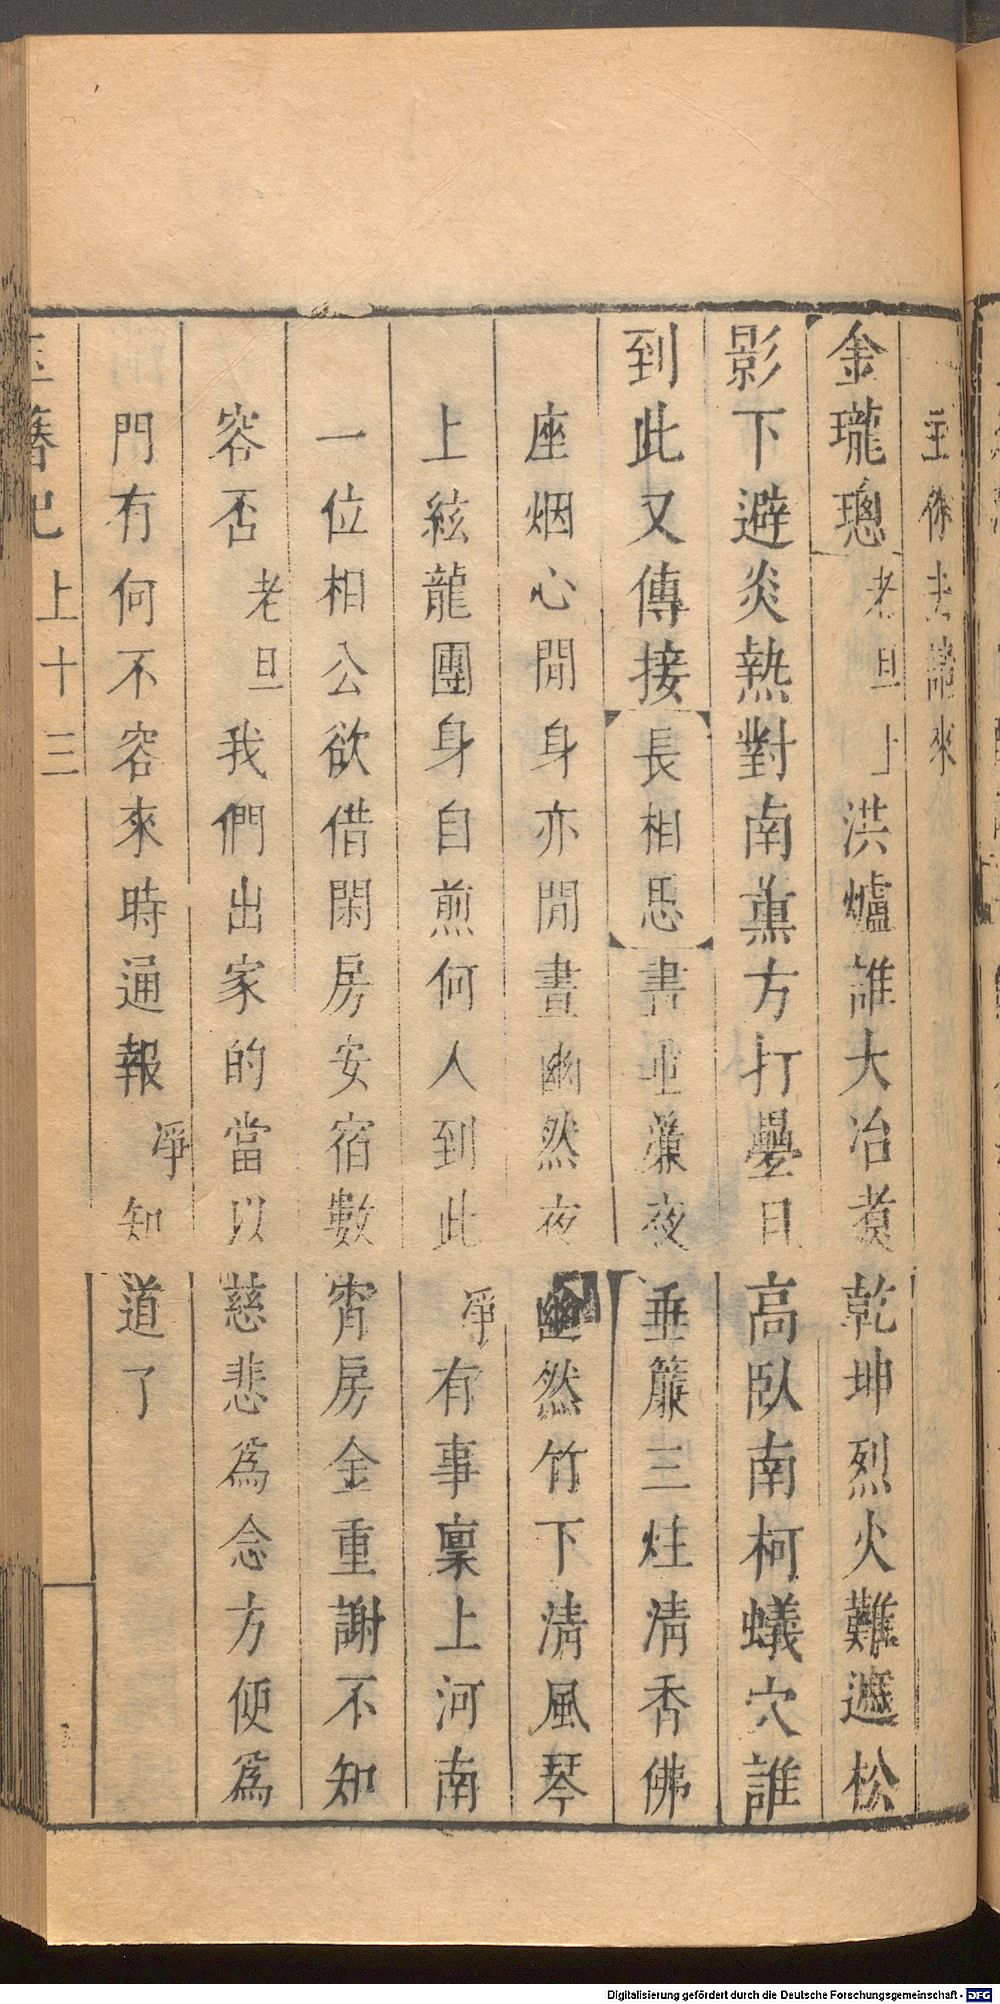 主你去請來
金瓏璁老旦上洪爐誰大冶煑乾坤烈火難遮松
影下避炎熱對南薰方打疊日高臥南柯蟻穴誰
到此又傳接長相思晝垂簾夜垂簾三炷清香佛
座烟心閒身亦閒晝幽然夜幽然竹下清風琴
上絃龍團身自煎何人到此凈有事稟上河南
一位相公欲借閑房安宿數宵房金重謝不知
容否老旦我們出家的當以慈悲為念方便為
門有何不容來時通報凈知道了
玉簪記 上十三
Digitalisierung gefördert durch die Deutsche Forschungsgemeinschaft - DFG